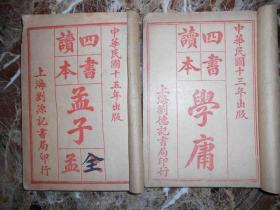 中華民國十五年出版
四書讀本
孟子
孟全
上海劉德記書局印行
中華民國十三年出版
四書讀本
學庸
上海劉德記書局印行